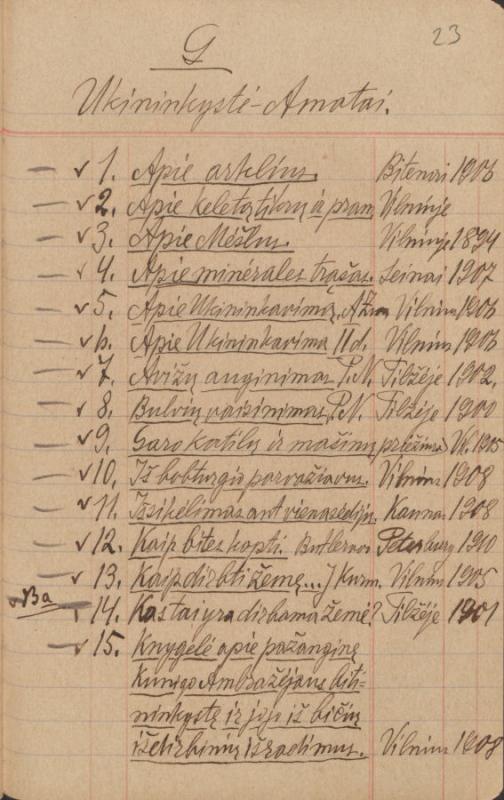 23
G
Ukininkystė-Amatai.
✓ 1. Apie arklius. Bitėnai 1906
✓ 2. Apie keletą tikrų ir pram Vilniuje
✓ 3. Apie Mėšlus. Vilniuje 1894
✓ 4. Apie minėrales trąšas. Seinai 1907
✓ 5. Apie Ukininkavimą. Vilnius 1906
✓ 6. Apie Ukininkavima II d. Vilnius 1906
✓ 7. Avižų auginimas P.N. Tilžėje 1902
✓ 8. Bulvių vaisinimas, P.N. Tilžėje 1900
✓ 9. Garo katilų ir mašinų priežiura Vil. 1905
✓ 10. Iš Vilnius 1908
✓ 11. Išsikėlimas ant vienasėdijų. Kaunas 1908
✓ 12. Kaip bites kopti. Butlerovo Peterburg 1910
✓ 13. Kaip dirbti žemę...J Kurm. Vilnius 1905
Ba
✓ 14. Kas tai yra dirbama žemė? Tilžėje 1901
✓ 15. Knygelė apie pažanginę
Kunigo Ambražėjaus biti-
ninkystę ir jojo iš bičių
išdirbinių išradimus. Vilnius 1908